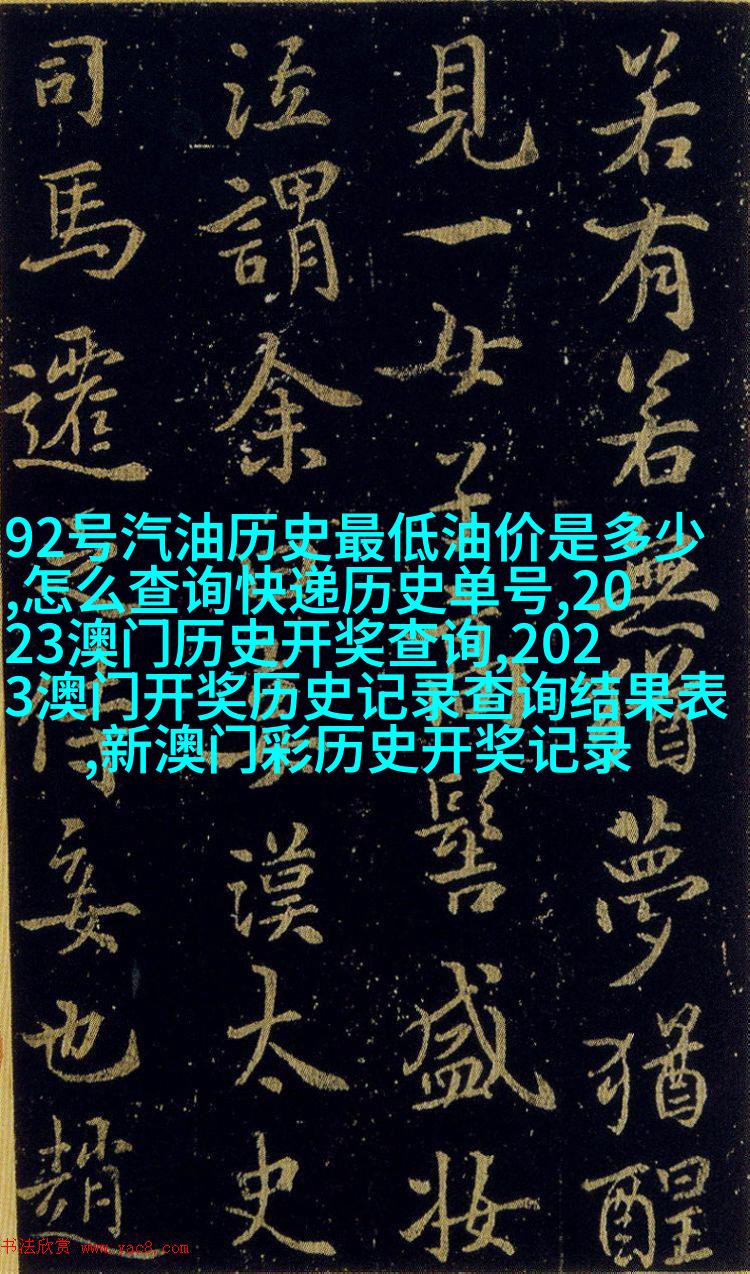 若有若無猶夢猶醒
見一女子髻盛妝
泣謂余曰漢太史
司馬遷之侍妾也趙
92号汽油历史最低油价是多少
,怎么查询快递历史单号,20
23澳门历史开奖查询,202
3澳门开奖历史记录查询结果表
,新澳门彩历史开奖记录
书法欣赏 www.yac8.com